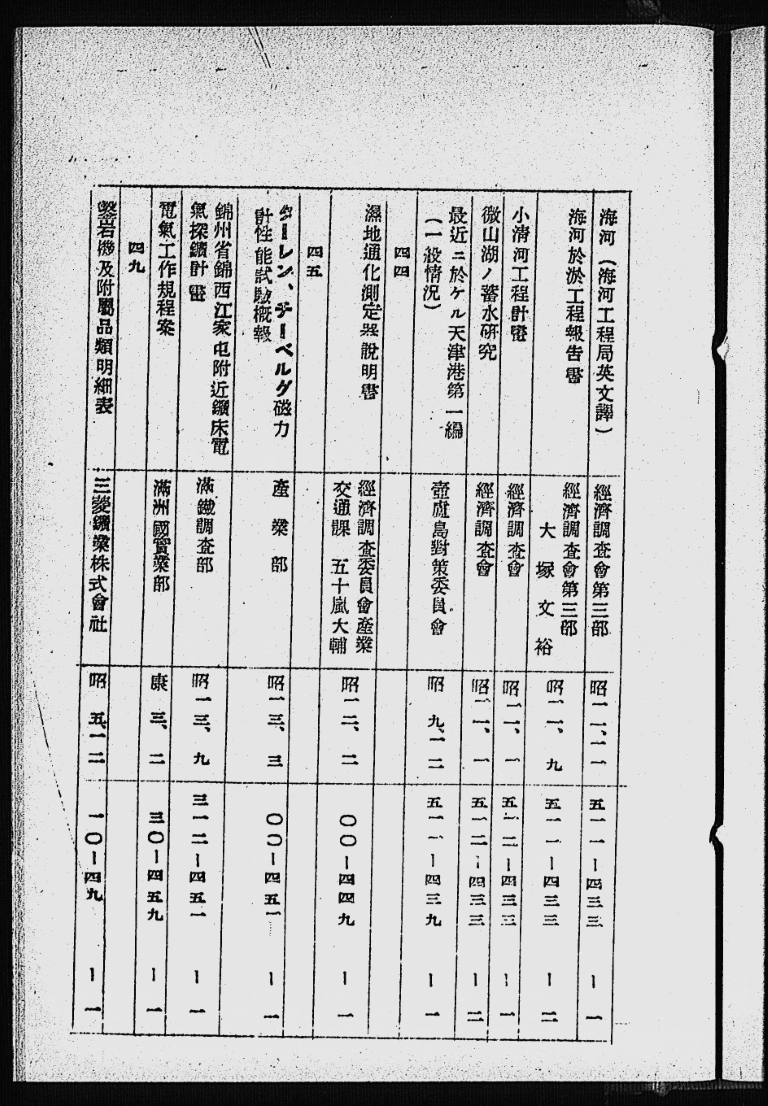 海河（海河工程局英文譯） 經濟調査會第三部 昭一一、一一 五一一ー四三三 ー一
海河於淤工程報告書 經濟調査會第三部 昭一一、九 五一一ー四三三 ー二
大塚文裕
小清河工程計畫 經濟調査會 昭一一、一 五一二ー四三三 ー一
微山湖ノ蓄水研究 經濟調査會 昭一一、一 五一二ー四三三 ー二
最近ニ於ケル天津港第一編 壺蘆島對策委員會 昭九、一二 五一一ー四三九 ー一
（一般情況）
四四
濕地通化測定器說明書 經濟調査委員會產業 昭一二、二 〇〇ー四四九 ー一
交通課 五十嵐大輔
四五
ターレン、チーベルグ磁力 產業部 昭一三、三 〇〇ー四五一 ー一
計性能試驗概報
錦州省錦西江家屯附近鑛床電 滿鐵調査部 昭一三、九 三一二ー四五一 ー一
氣探鑛計畫
電氣工作規程案 滿洲國實業部 康三、二 三〇ー四五九 ー一
四九
鑿岩機及附屬品類明細表 三菱鑛業株式會社 昭五、一二 一〇ー四九 ー一